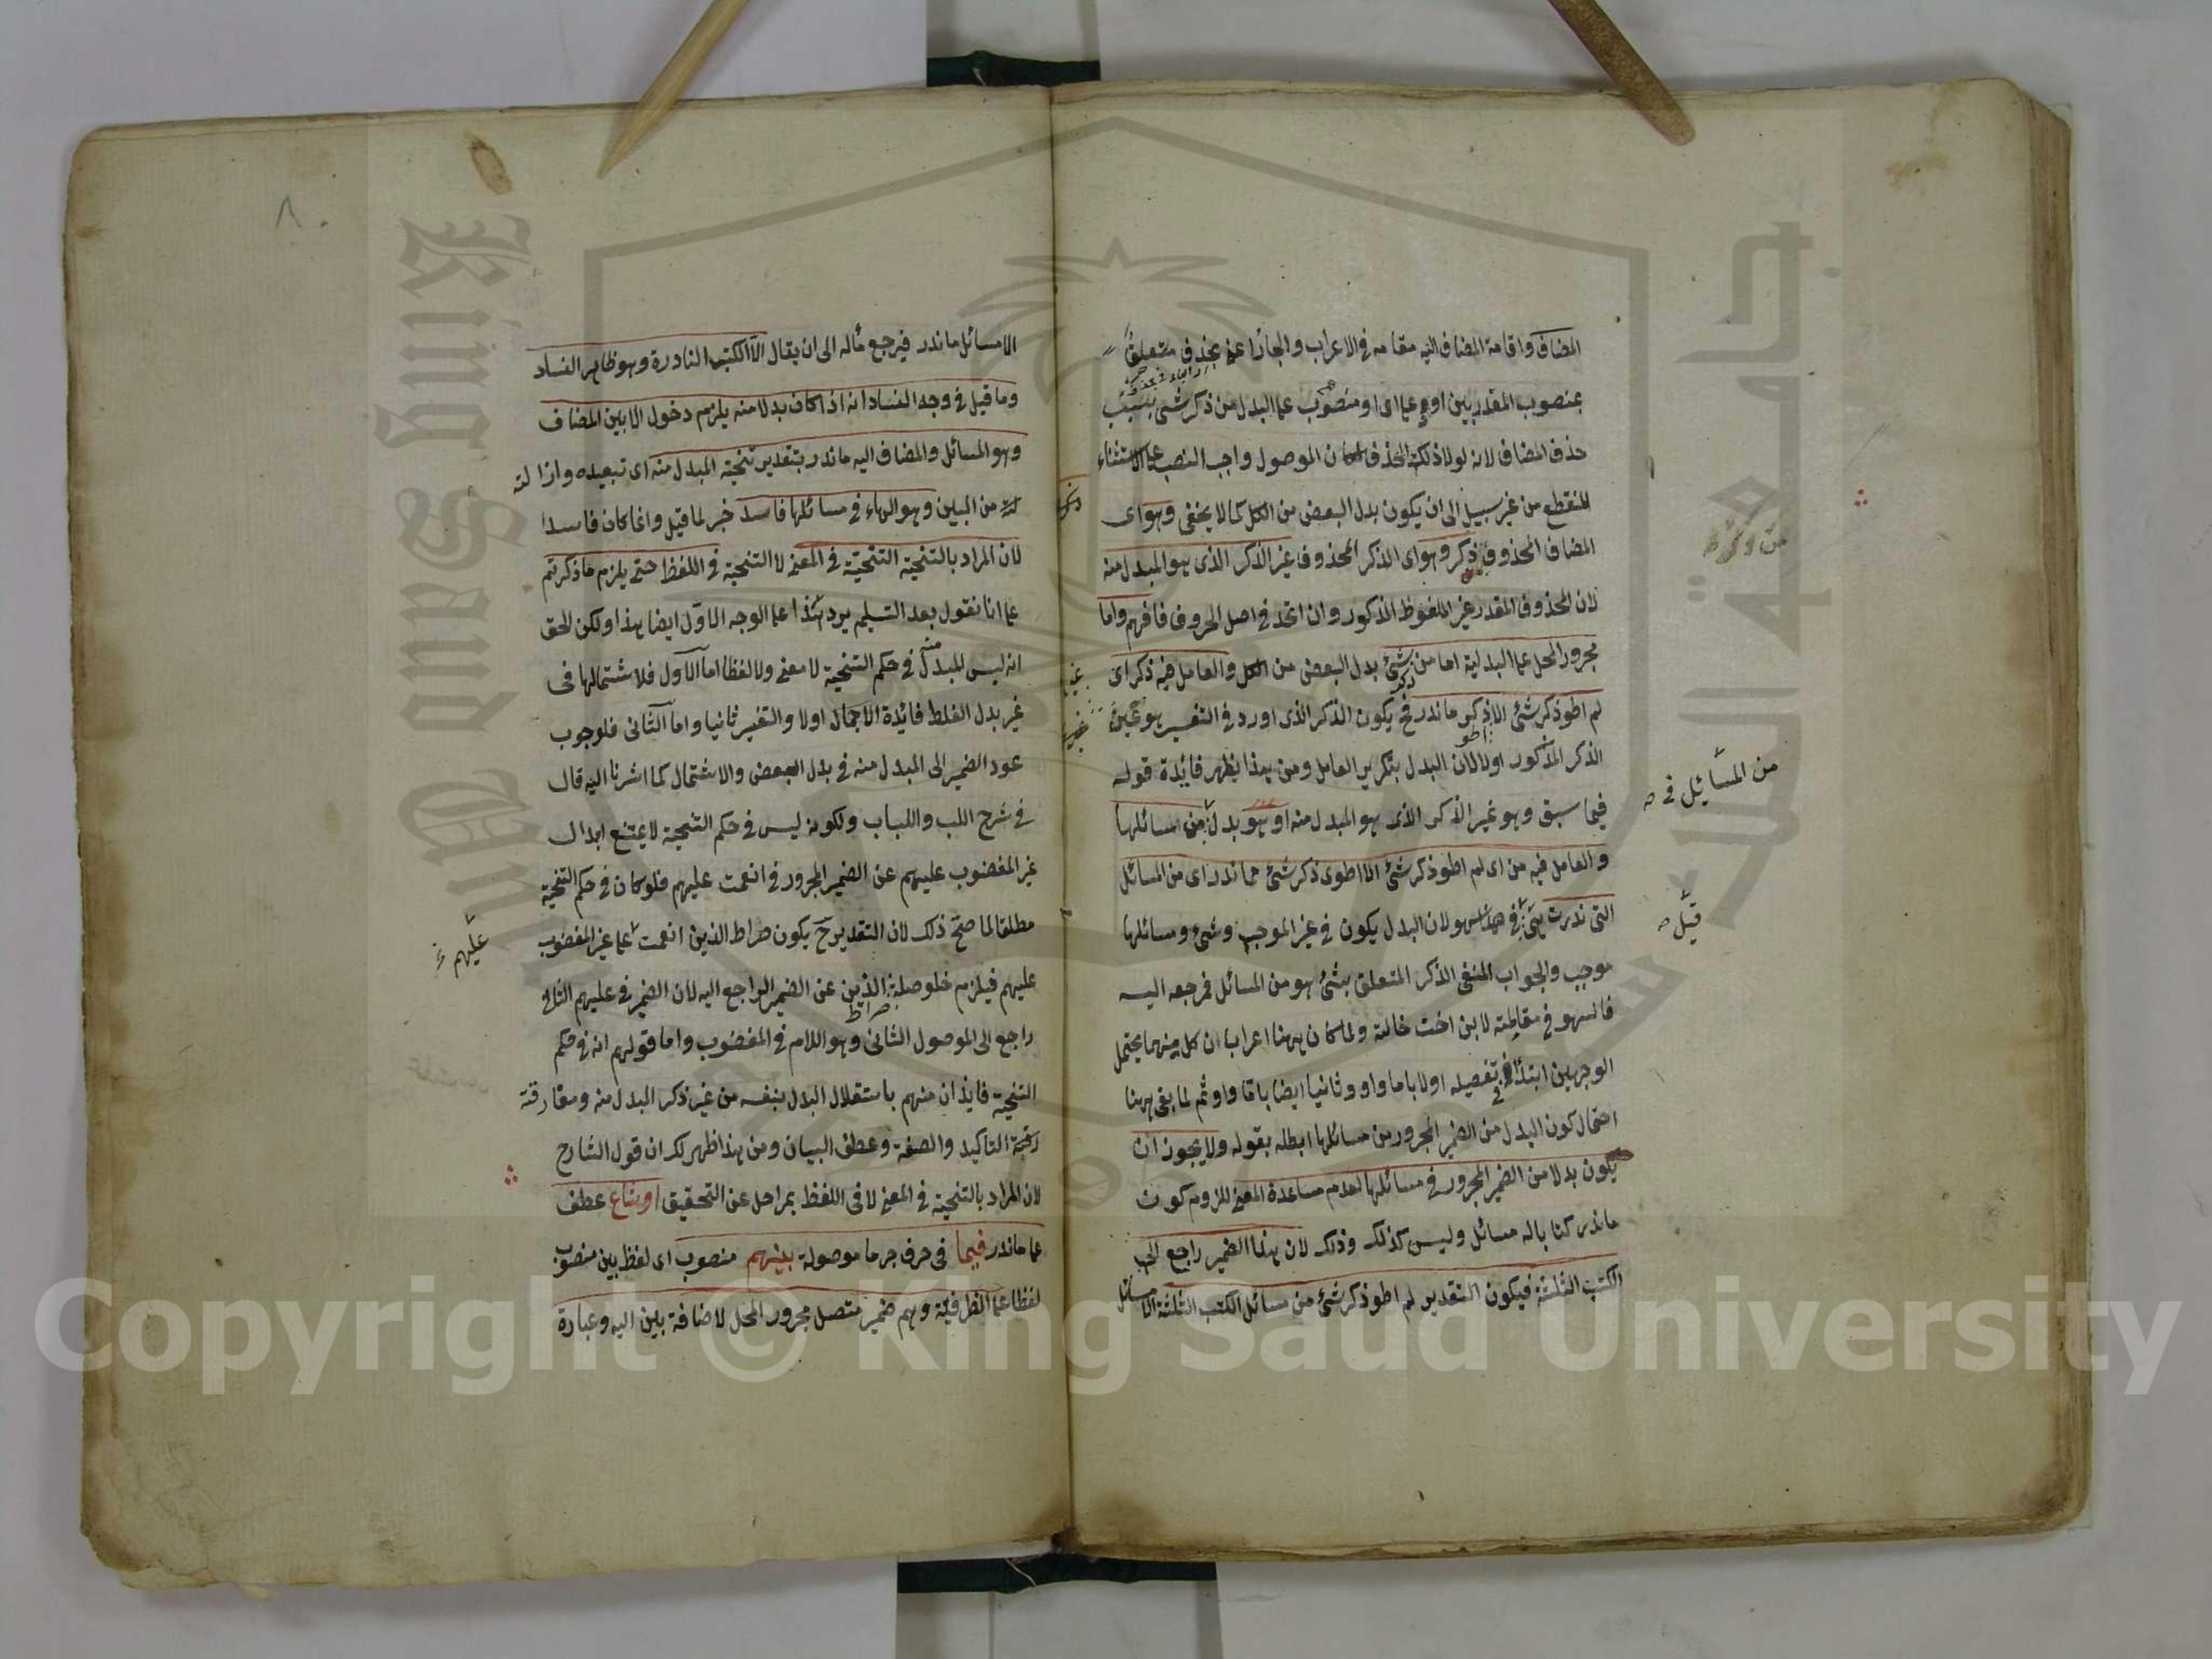 المضاف واقامة المضاف اليه مقامه في الاعراب والجار اعنى بحذف متعلق
بمنصوب المقدر بين او وعلى اى او منصوب على البدل من ذكر شئ بسبب
حذف المضاف لانه لولا ذلك الحذف لكان الموصول واجب النصب على الاستثناء
المنقطع من غير سبيل الى ان يكون بدل البعض من الكل كما لا يخفى وهو اى
المضاف المحذوف ذكر وهو اى الذكر المحذوف غير الذكر الذى هو المبدل منه
لان المحذوف المقدر غير الملفوظ المذكور وان اتحد في اصل الحروف فافهم واما
مجرور المحل على البدلية اما من شئ بدل البعض من الكل والعامل فيه ذكر اى
لم اطو ذكر شئ الا ذكر ماندر فح يكون الذكر الذى اورد في التفسير هو عين
الذكر المذكور اولا لان البدل بتكرير العامل ومن هذا يظهر فائدة قوله
فيما سبق وهو غير الذكر الذى هو المبدل منه او هو بدل من مسائلها
والعامل فيه من اى لم اطو ذكر شئ الا اطوى ذكر شئ مما ندر اى من المسائل
التى ندرت سهو لان البدل يكون في غير الموجب وشئ ومسائلها
موجب والجواب المنفى الذكر المتعلق بشئ هو من المسائل فمرجعه اليه
فالسهو في مقابلته لابن اخت خالته ولما كان ههنا اعرابان كل منهما يحتمل
الوجهين ابتدأ في تفصيله اولا باما واو وثانيا ايضا باما واو ثم لما بقى ههنا
احتمال كون البدل من الضمير المجرور من مسائلها ابطله بقوله ولا يجوز ان
يكون بدلا من الضمير المجرور في مسائلها لعدم مساعدة المعنى للزوم كون
ماندر كتابا له مسائل وليس كذلك وذلك لان هذا الضمير راجع الى
الكتب الثلثة فيكون التقدير لم اطو ذكر شئ من مسائل الكتب الثلثة الا مسائل
من المسائل في
قيل
٨
الا مسائل ماندر فيرجع مأله الى ان يقال الا الكتب النادرة وهو ظاهر الفساد
وما قيل في وجه الفساد انه اذا كان بدلا منه يلزم دخول الا بين المضاف
وهو المسائل والمضاف اليه ماندر بتقدير تنحية المبدل منه اى تبعيده وازالته
من البين وهو الهاء في مسائلها فاسد خبر لما قيل وانما كان فاسدا
لان المراد بالتنحية التنحية في المعنى لا التنحية في اللفظ حتى يلزم ما ذكرتم
على انا نقول بعد التسليم يرد هذا على الوجه الاول ايضا هذا ولكن الحق
انه ليس المبدل منه في حكم التنحية لا معنى ولا لفظا اما الاول فلاشتمالها في
غير بدل الغلط فائدة الاجمال اولا والتفسير ثانيا واما الثانى فلوجوب
عود الضمير الى المبدل منه في بدل البعض والاشتمال كما اشرنا اليه قال
في شرح اللب واللباب ولكونه ليس في حكم التنحية لا يمتنع ابدال
غير المغضوب عليهم عن الضمير المجرور في انعمت عليهم فلو كان في حكم التنحية
مطلقا لما صح ذلك لان التقدير ح يكون صراط الذين انعمت على غير المغضوب
عليهم فيلزم خلو صلة الذين عن الضمير الراجع اليه لان الضمير في عليهم الثانى
راجع الى الموصول الثانى وهو اللام في المغضوب واما قولهم انه في حكم
التنحية فايذان منهم باستقلال البدل بنفسه من غير ذكر المبدل منه ومفارقته
التاكيد والصفة وعطف البيان ومن هذا ظهر لك ان قول الشارح
لان المراد بالتنحية في المعنى لا في اللفظ بمراحل عن التحقيق او شاع عطف
على ماندر فيما في حرف جر ما موصولة بينهم منصوب اى لفظ بين منصوب
لفظا على الظرفية وهم ضمير متصل مجرور المحل لاضافة بين اليه وعبارة
عليهم
جامعة الملك سعود
King Saud University
Copyright © King Saud University